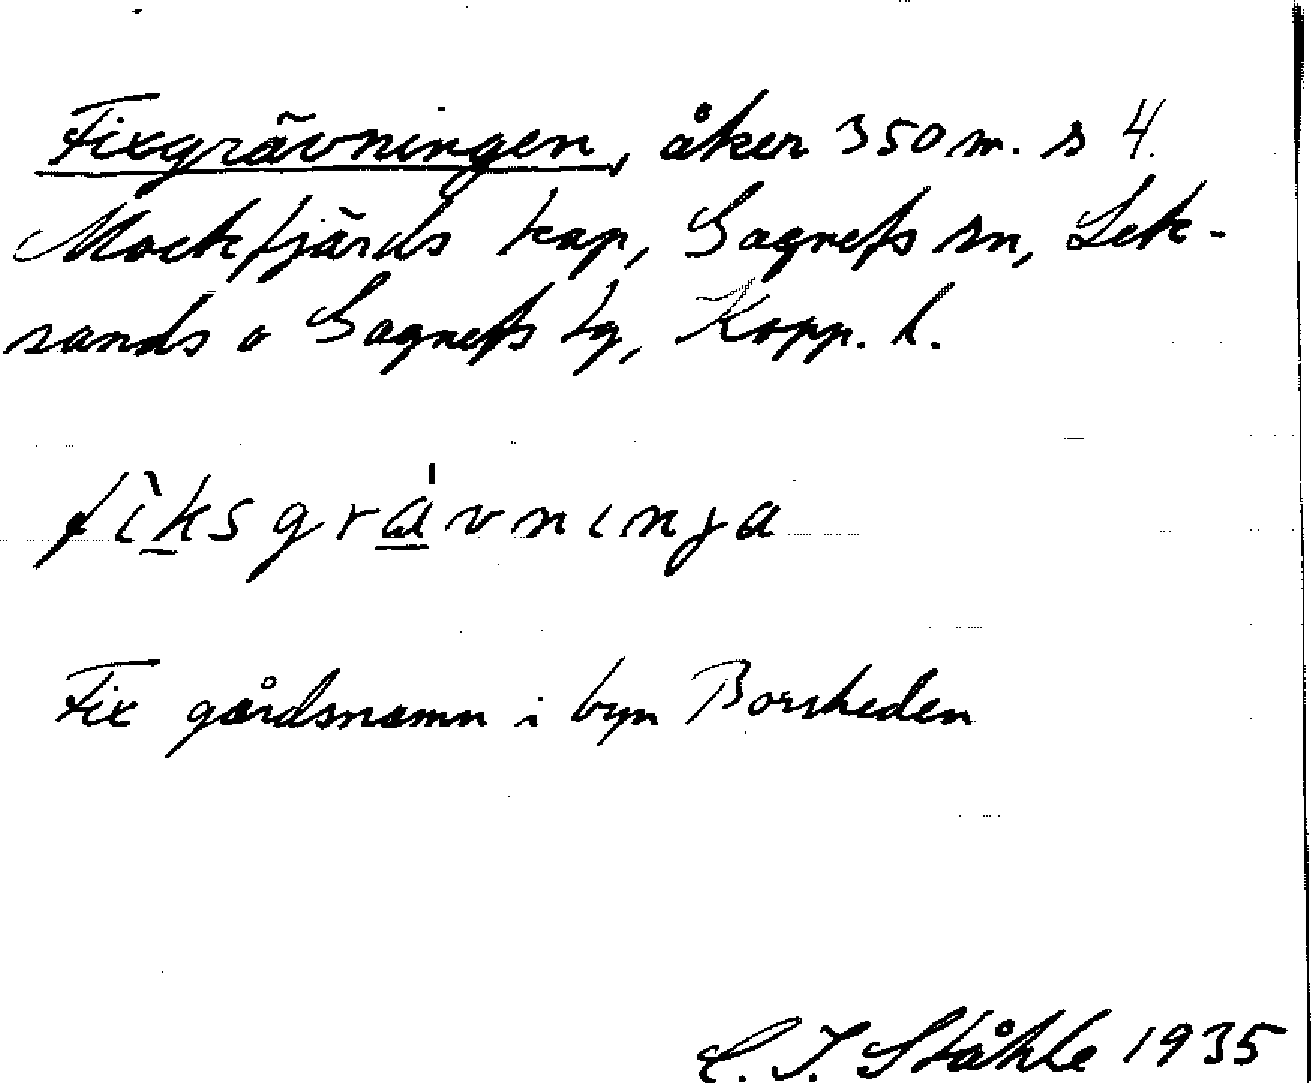 Fixgrävningen, åker 350 m. s 4.
Mockfjärds kap, Gagnefs sn, Lek-
sands o Gagnefs tg, Kopp. l.
fìksgrävninja
Fix gårdsnamn i byn Borsheden
C. I. Ståhle 1935